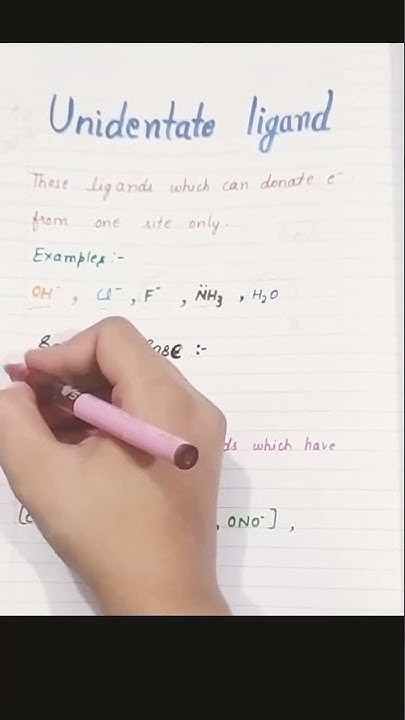 Unidentate ligand
Those ligands which can donate e⁻
from one site only.
Examples :-
OH⁻ , Cl⁻ , F⁻ , N̈H₃ , H₂O
:-
which have
, ONO⁻] ,